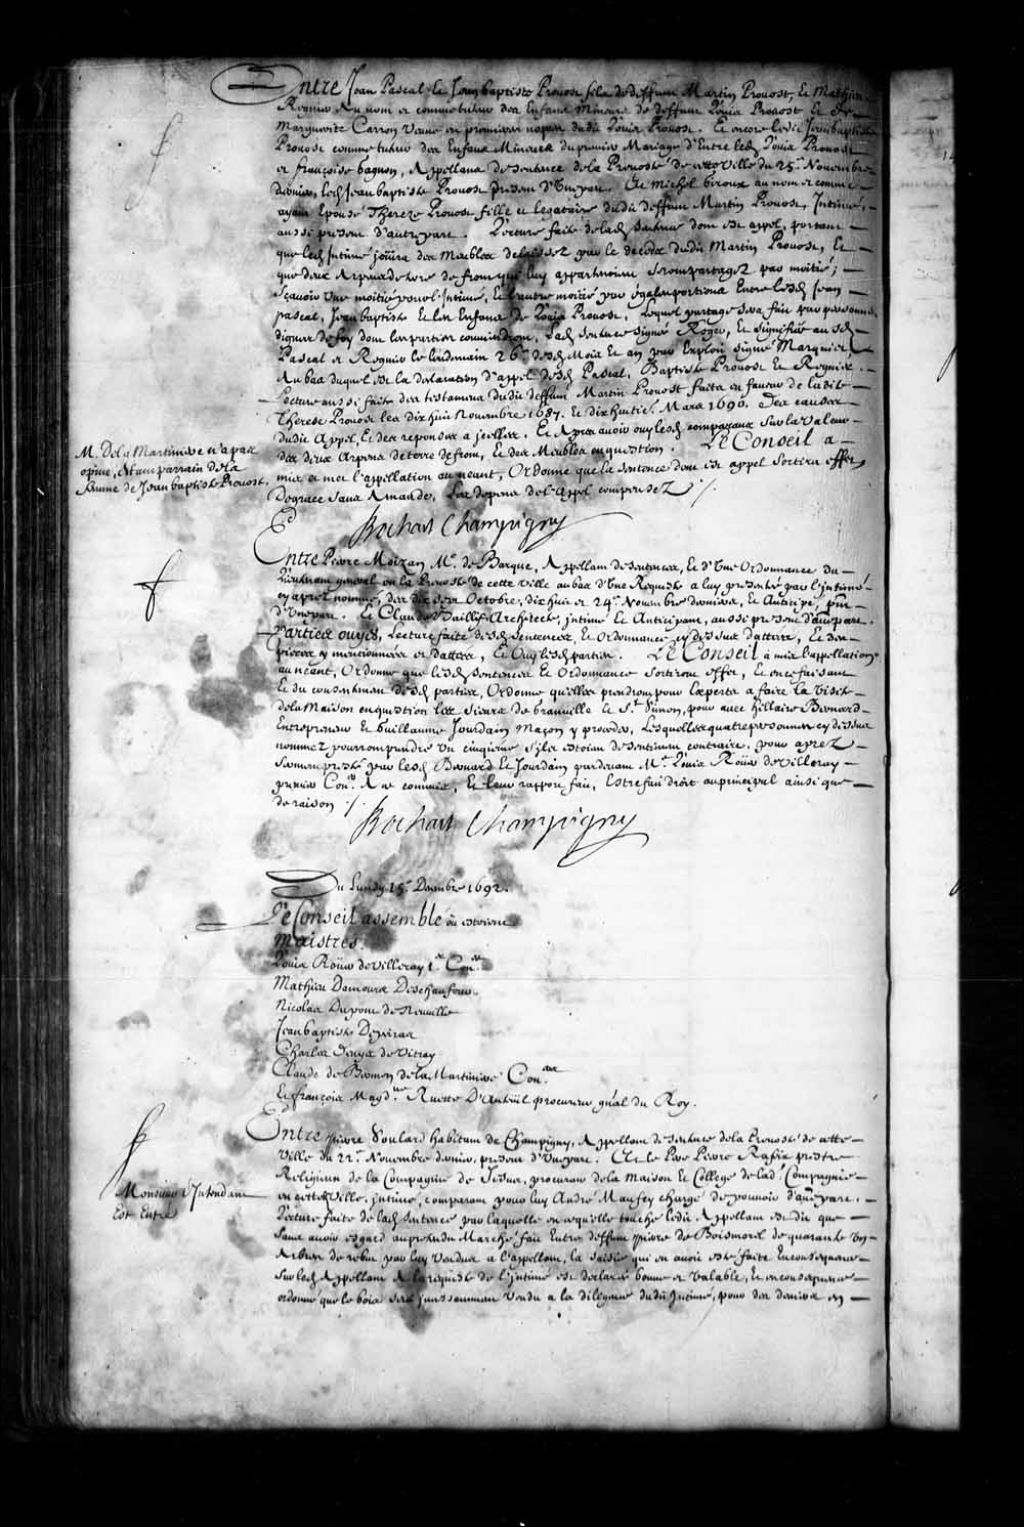 Entre Jean Pascal, et Jean baptiste Prouost fils de deffunt Martin Prouost, et Mathieu
Regnier au nom et comme tuteur des Enfans Mineurs de deffunt Louis Prouost et de
Marguerite Carron veuve en premieres nopces dudit Louis Prouost. Et encore ledit Jean baptiste
Prouost comme tuteur des Enfans Mineurs du premier Mariage d'Entre led Louis Prouost
et françoise gagnon, Appellans de sentence de la Preuosté de cette Ville du 25e Nouembre
dernier, led Jean baptiste Prouost present d'Vne part. Et michel giroux au nom et comme
ayant Epousé Therese Prouost fille et legataire dudit deffunt Martin Prouost, Intimé,
aussi present d'autre part. Lecture faite de lad sentence dont est appel, portant
que led Intimé joüira des Meubles delaissez par le deceds dudit Martin Prouost, Et
que deux Arpens de terre de front qui luy appartenoient seront partagez par moitié;
sçauoir Vne moitié pour l'Intimé, Et l'autre moitié par égales portions Entre lesd Jean
pascal, Jean baptiste et les Enfans de Louis Prouost, lequel partage sera fait par personnes
dignes de foy dont les parties conuiendront, lad sentence signée Roger, Et signifiée ausd
Pascal et Regnier le lendemain 26e desd Mois et an par Exploit signé Marquier,
Au bas duquel est la declaration d'appel desd Pascal, Baptiste Prouost Et Regnier.
Lecture aussi faite des testamens dudit deffunt Martin Prouost faits en faueur de ladite
Therese Prouost les dix huit Nouembre 1687. et dix huitie. Mars 1690. Des causes
dudit Appel, Et des reponses a jcelles. Et Apres auoir ouy lesd comparans sur la valeur
des deux Arpens de terre de front, Et des Meubles en question. Le Conseil a
mis et met l'appellation au neant, Ordonne que la sentence dont est appel sortira effet
De grace sans Amande, Les depens de l'Appel compensez ./.
M. Dela Martiniere n'a pas
opiné, Estant parrain de la
femme de Jean baptiste Prouost.
Bochart Champigny
Entre Pierre Moizan Me. de Barque, Appellant de sentences, Et d'Vne Ordonnance du
Lieutenant general en la Preuosté de cette ville au bas d'Vne Requeste a luy presentée par l'intimé
cy aprez nommé, des dix sept Octobre, dix huit et 24e. Nouembre derniers, Et Anticipé, pnt
d'Vne part. Et Claude Baillif Architecte, intimé Et Anticipant, aussi present d'autre part.
Parties ouyes, Lecture faite desd sentences, Et Ordonnance cy dessus dattées, Et des
pieces y mentionnées et dattées, Et Ouy lesd parties. Le Conseil a mis l'appellation
au neant, Ordonne que lesd sentences Et Ordonnance sortiront effet, Et en ce faisant
Et du consentement desd parties, Ordonne qu'elles prendront pour Experts a faire la Visite
de la Maison en question les sieurs de granuille Et St. Simon, pour auec hillaire Bernard
Entrepreneur Et Guillaume Jourdain Maçon y proceder, Lesquelles quatre personnes cy dessus
nommez pourront prendre vn cinquieme s'jls estoient de sentiment contraire, pour aprez
serment presté par lesd Bernard Et Jourdain pardeuant Me. Louis Roüer de Villeray
premier Conr. A ce commis, Et leur rapport fait, Estre fait droit au principal ainsi que
de raison ./.
Bochart Champigny
Du Lundy 15e Decembre 1692.
Le Conseil assemblé ou estoient
Maistres.
Louis Roüer de Villeray 1er. Conr.
Mathieu Damours Deschaufour
Nicolas Dupont de Neuuille
Jean baptiste Depeiras
Charles Denys de Vitray
Claude de Bermen de la Martiniere Coners
Et françois Magdne Ruette D'Auteüil procureur gnal du Roy.
Monsieur l'Intendant
Est Entré
Entre pierre Soulard habitant de Champigny, Appellant de sentence de la Preuosté de cette
Ville du 22e. Nouembre dernier, present d'Vne part. Et le Pere Pierre Rafeix prestre
Religieux de la Compagnie de Jesus, procureur de la maison Et College de lad. Compagnie
en cette Ville, intimé, comparant pour luy André Maufey chargé de pouuoir d'autre part.
Lecture faite de lad sentence par laquelle en ce qu'elle touche ledit Appellant est dit que
sans auoir esgard au pretendu Marché fait Entre deffunt pierre de Boismorel de quarante vn
de par luy Vendus a l'appellant, la saisie qui en auoit esté faite En consequence
sur led Appellant A la requeste de l'Intimé est declarée bonne et valable, Et en consequence
ordonné que le bois sera jncessamment vendu a la diligence dudit Intimé, pour des deniers en